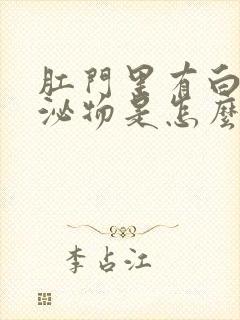 肛門里有白
泌物是怎麼
李占江